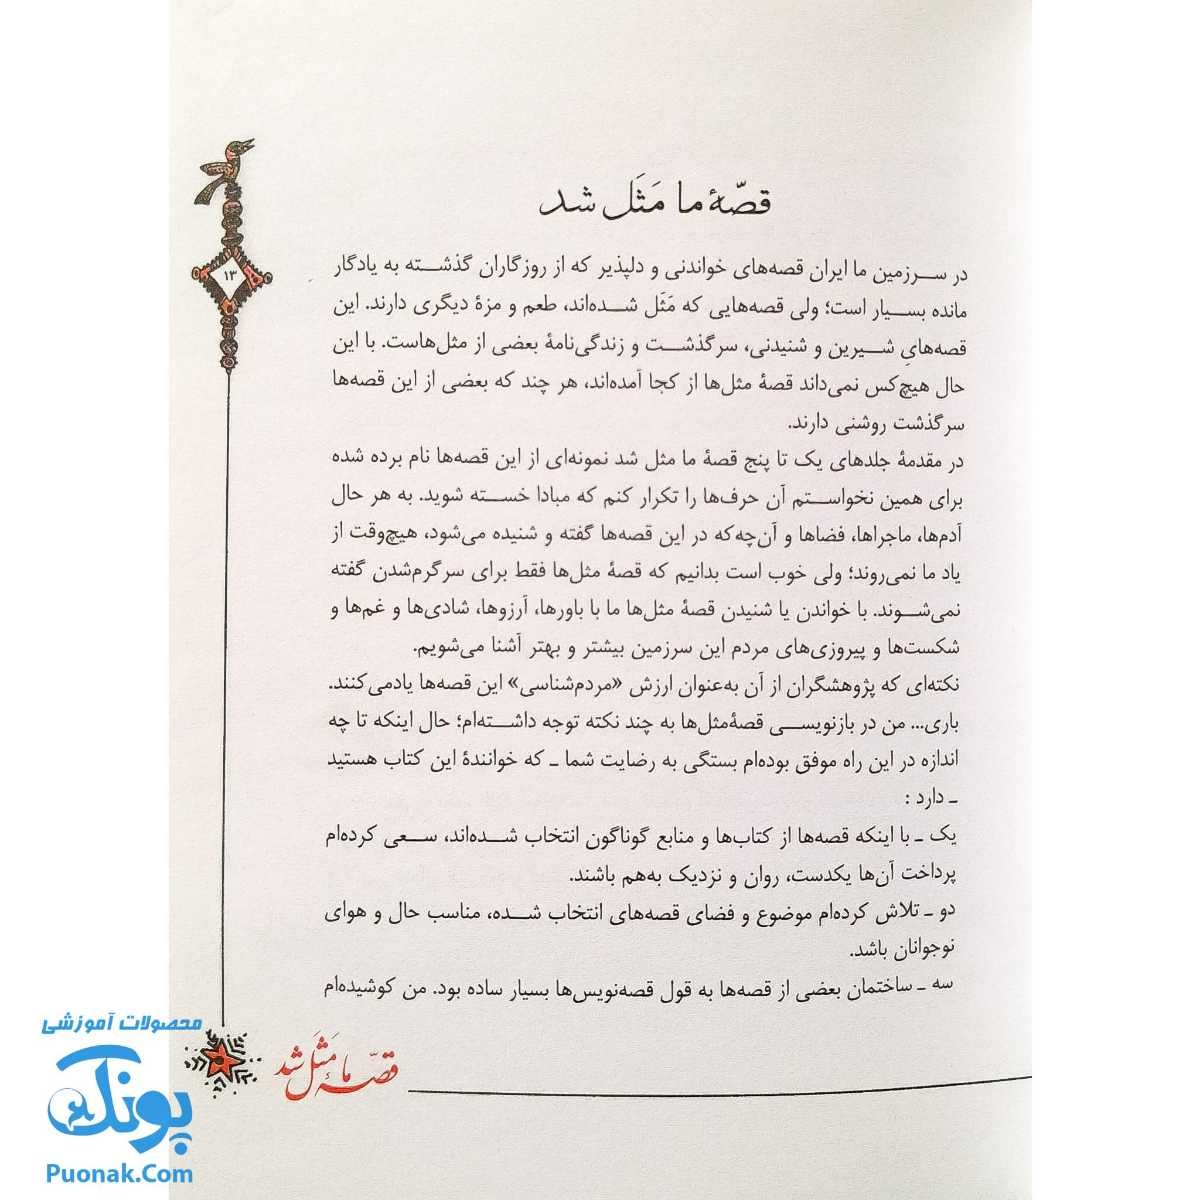 قصّهٔ ما مَثَل شد
۱۳
در سرزمین ما ایران قصه‌های خواندنی و دلپذیر که از روزگاران گذشته به یادگار
مانده بسیار است؛ ولی قصه‌هایی که مَثَل شده‌اند، طعم و مزهٔ دیگری دارند. این
قصه‌هایِ شیرین و شنیدنی، سرگذشت و زندگی‌نامهٔ بعضی از مثل‌هاست. با این
حال هیچ‌کس نمی‌داند قصهٔ مثل‌ها از کجا آمده‌اند، هر چند که بعضی از این قصه‌ها
سرگذشت روشنی دارند.
در مقدمهٔ جلدهای یک تا پنج قصهٔ ما مثل شد نمونه‌ای از این قصه‌ها نام برده شده
برای همین نخواستم آن حرف‌ها را تکرار کنم که مبادا خسته شوید. به هر حال
آدم‌ها، ماجراها، فضاها و آن‌چه‌که در این قصه‌ها گفته و شنیده می‌شود، هیچ‌وقت از
یاد ما نمی‌روند؛ ولی خوب است بدانیم که قصهٔ مثل‌ها فقط برای سرگرم‌شدن گفته
نمی‌شوند. با خواندن یا شنیدن قصهٔ مثل‌ها ما با باورها، آرزوها، شادی‌ها و غم‌ها و
شکست‌ها و پیروزی‌های مردم این سرزمین بیشتر و بهتر آشنا می‌شویم.
نکته‌ای که پژوهشگران از آن به‌عنوان ارزش «مردم‌شناسی» این قصه‌ها یادمی‌کنند.
باری... من در بازنویسی قصهٔ‌مثل‌ها به چند نکته توجه داشته‌ام؛ حال اینکه تا چه
اندازه در این راه موفق بوده‌ام بستگی به رضایت شما ـ که خوانندهٔ این کتاب هستید
ـ دارد :
یک ـ با اینکه قصه‌ها از کتاب‌ها و منابع گوناگون انتخاب شده‌اند، سعی کرده‌ام
پرداخت آن‌ها یکدست، روان و نزدیک به‌هم باشند.
دو ـ تلاش کرده‌ام موضوع و فضای قصه‌های انتخاب شده، مناسب حال و هوای
نوجوانان باشد.
سه ـ ساختمان بعضی از قصه‌ها به قول قصه‌نویس‌ها بسیار ساده بود. من کوشیده‌ام
قصّهٔ ما مَثَل شد
محصولات آموزشی
پونک
Puonak.Com